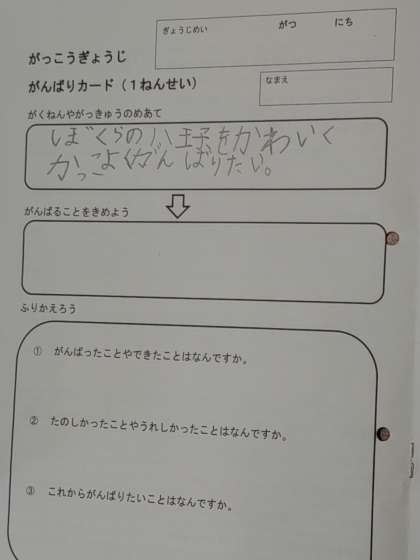 ぎょうじめい がつ にち
がっこうぎょうじ
がんばりカード（１ねんせい）
なまえ
がくねんやがっきゅうのめあて
ぼくらの八王子をかわいく
かっこよくがんばりたい。
がんばることをきめよう
ふりかえろう
① がんばったことやできたことはなんですか。
② たのしかったことやうれしかったことはなんですか。
③ これからがんばりたいことはなんですか。